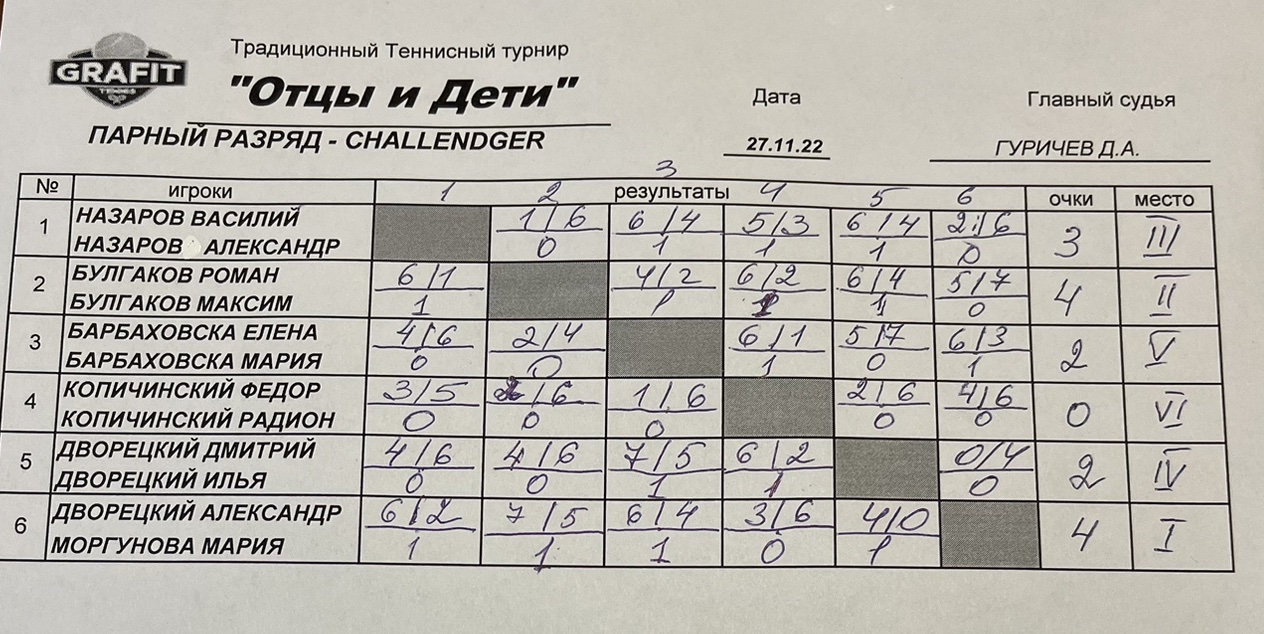 GRAFIT
TENNIS
Традиционный Теннисный турнир
"Отцы и Дети"
ПАРНЫЙ РАЗРЯД - CHALLENDGER
Дата
27.11.22
Главный судья
ГУРИЧЕВ Д.А.
3
№ игроки 1 2 результаты 4 5 6 очки место
1 НАЗАРОВ ВАСИЛИЙ 1/6 6/4 5/3 6/4 2/6 3 III
НАЗАРОВ АЛЕКСАНДР 0 1 1 1 0
2 БУЛГАКОВ РОМАН 6/1 4/2 6/2 6/4 5/7 4 II
БУЛГАКОВ МАКСИМ 1 1 1 1 0
3 БАРБАХОВСКА ЕЛЕНА 4/6 2/4 6/1 5/7 6/3 2 V
БАРБАХОВСКА МАРИЯ 0 0 1 0 1
4 КОПИЧИНСКИЙ ФЕДОР 3/5 2/6 1/6 2/6 4/6 0 VI
КОПИЧИНСКИЙ РАДИОН 0 0 0 0 0
5 ДВОРЕЦКИЙ ДМИТРИЙ 4/6 4/6 7/5 6/2 0/4 2 IV
ДВОРЕЦКИЙ ИЛЬЯ 0 0 1 1 0
6 ДВОРЕЦКИЙ АЛЕКСАНДР 6/2 7/5 6/4 3/6 4/0 4 I
МОРГУНОВА МАРИЯ 1 1 1 0 1